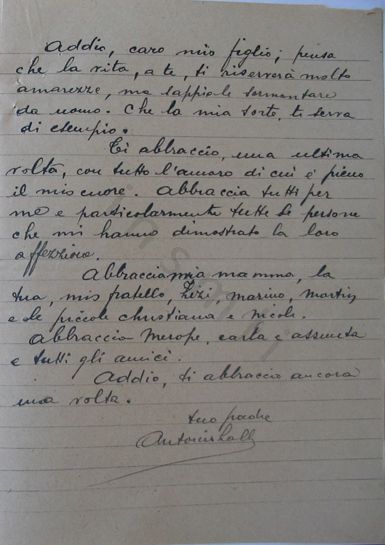 Addio, caro mio figlio; pensa
che la vita, a te, ti riserverà molto
amarezze, ma sappiale sormontare
da uomo. Che la mia sorte, ti serva
di esempio.
Ti abbraccio, una ultima
volta, con tutto l'amore di cui è pieno
il mio cuore. Abbraccia tutti per
me e particolarmente tutte le persone
che mi hanno dimostrato la loro
affezzione.
Abbraccia mia mamma, la
tua, mio fratello, Zizi, Marino, Martin
e le piccole Christiana e Nicole.
Abbraccia Merope, Carla e Assunta
e tutti gli amici.
Addio, ti abbraccio ancora
una volta.
tuo padre